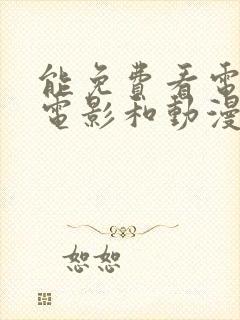 能免費看電
電影和動漫
恕恕